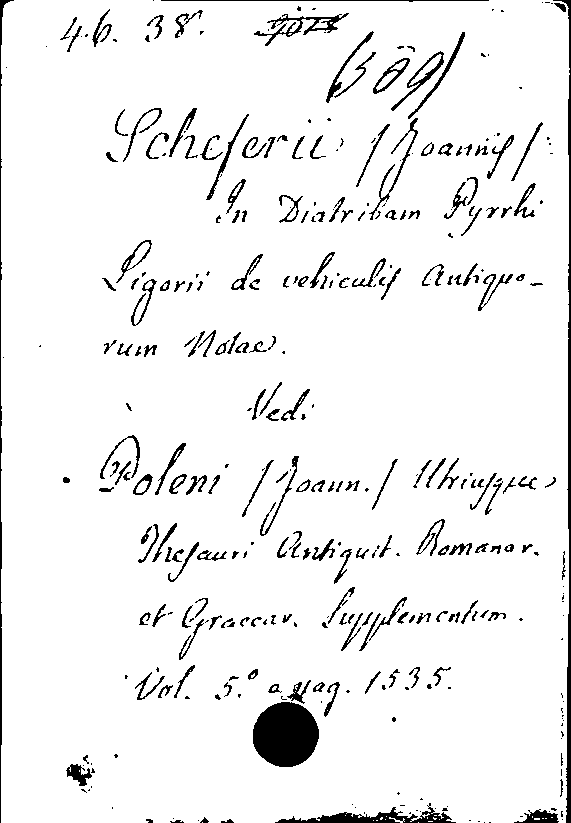 46. 38.
(509)
Scheferii /Joannis/
In Diatribam Pyrrhi
Ligorii de vehiculis Antiquo-
rum Notae.
Vedi
Poleni /Joann./ Utriusque
Thesauri Antiquit. Romanar.
et Graecar. Supplementum.
Vol. 5.º a pag. 1535.